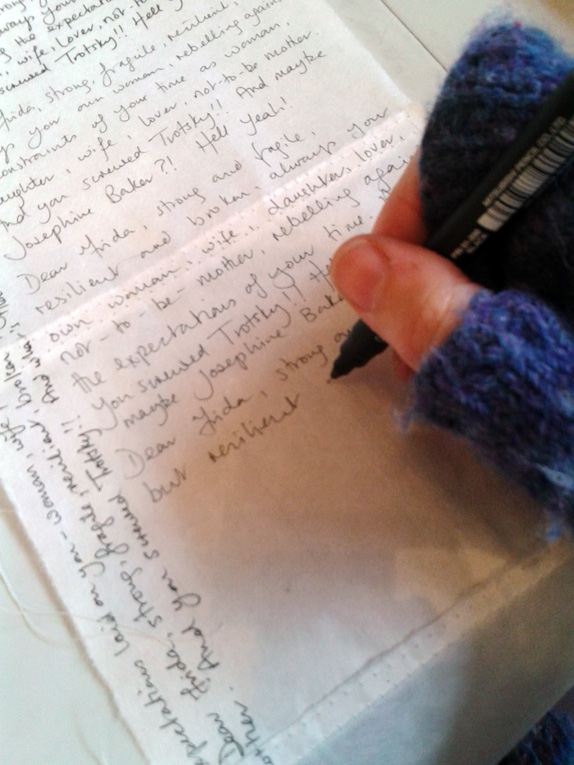 the expectat
wife, lover, not-to
screwed Trotsky!! Hell y
Frida, strong, fragile, resilient,
your own woman, rebelling again
constraints of your time as woman,
aughter, wife, lover, not-to-be mother.
nd you screwed Trotsky!! And maybe
Josephine Baker?! Hell Yeah!
Dear Frida, strong and fragile,
resilient and broken, always your
own woman, wife, daughter, lover,
not-to-be-mother, rebelling again
the expectations of your time.
You screwed Trotsky!! He
maybe Josephine Bake
Dear Frida, strong a
but resilient
xpectations laid on you - woman, wife
Dear Frida, strong, fragile, resilient, broken
other. And you screwed Trotsky!! And